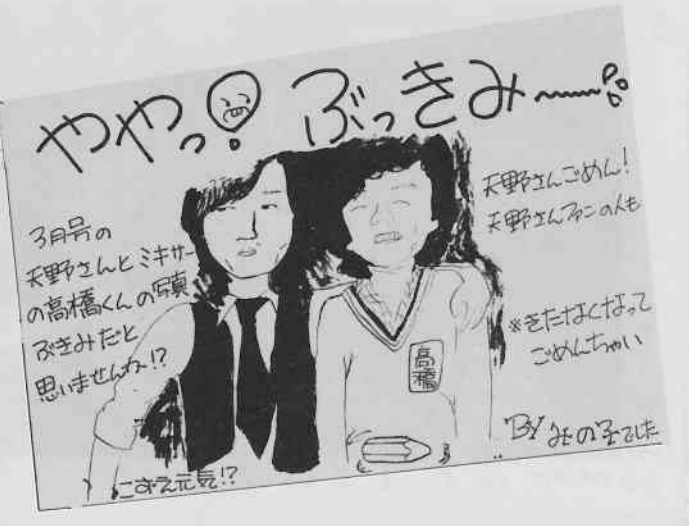 ややっ! ぶっきみ〜
3月号の
天野さんとミキサー
の高橋くんの写真
ぶきみだと
思いませんか!?
天野さんごめん!
天野さんファンの人も
※きたなくなって
ごめんちゃい
高橋
BY みの子でした
こずえ元気!?